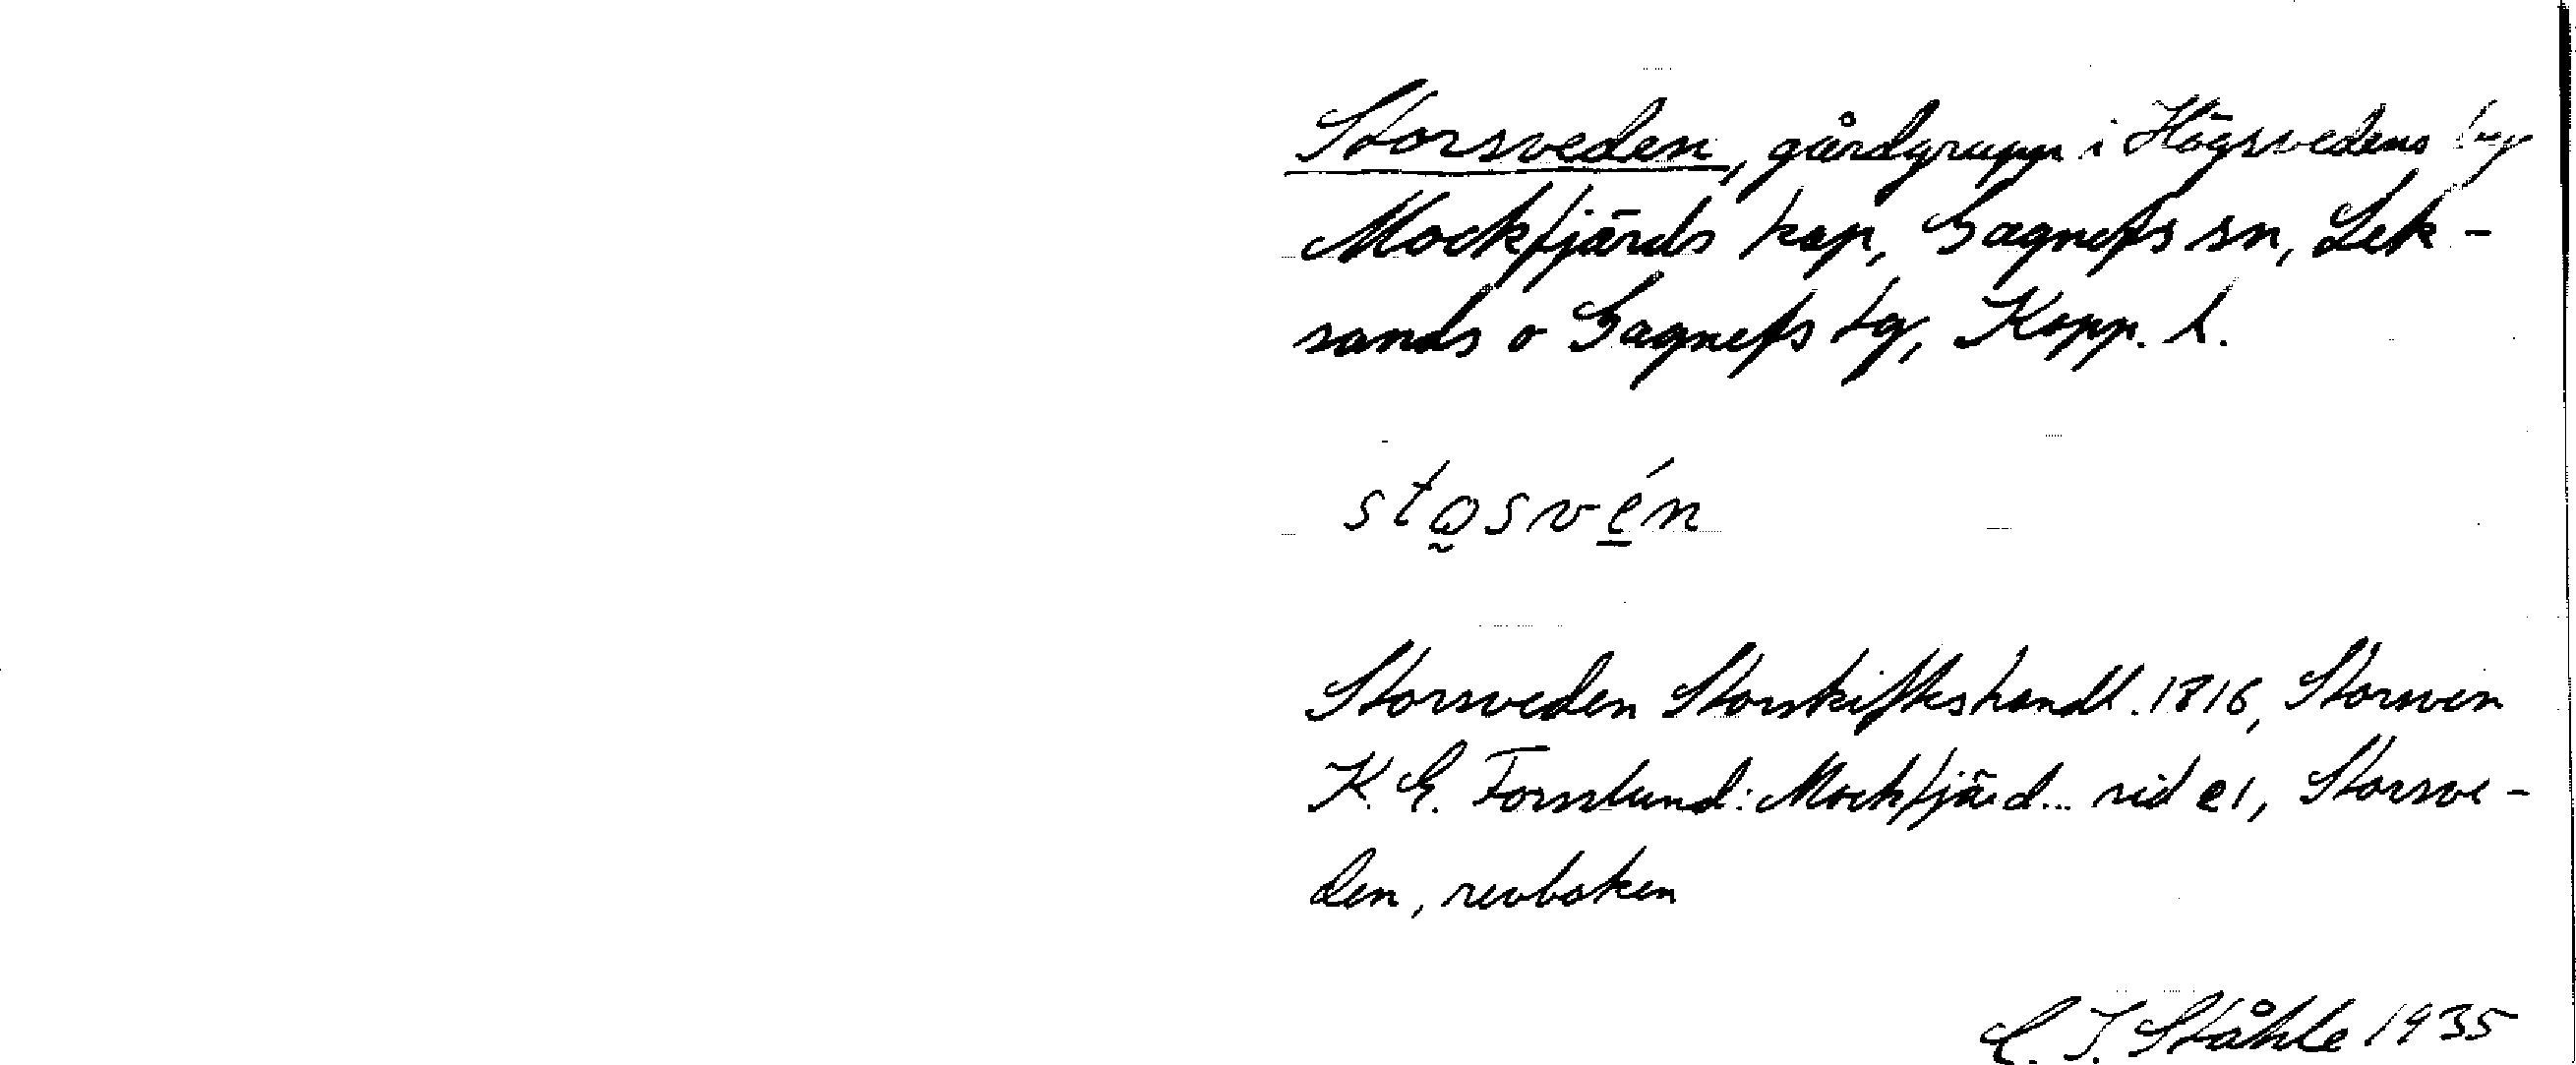 Storsveden, gårdgrupp i Högsvedens by
Mockfjärds kap, Gagnefs sn, Lek-
sands o Gagnefs tg, Kopp. l.
sto̰své̲n
Storsveden Storskifteshandl. 1816, Storsven
K. E. Forslund: Mockfjärd... sid 21, Storsve-
den, revboken
C. I. Ståhle 1935